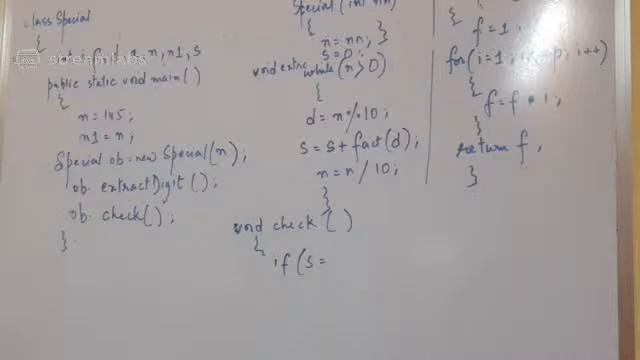 class Special
{
n, n1, s
public static void main()
{
n=145;
n1=n;
Special ob=new Special(n);
ob. extractDigit();
ob. check();
}
Special (int nn)
{
n=nn; }
s=0;
void
while (n>0)
{
d=n%10;
s=s+fact(d);
n=n/10;
}
void check()
{
if(s=
{
f=1;
for(i=1; i++)
{
f=f*i;
}
return f;
}
streamlabs